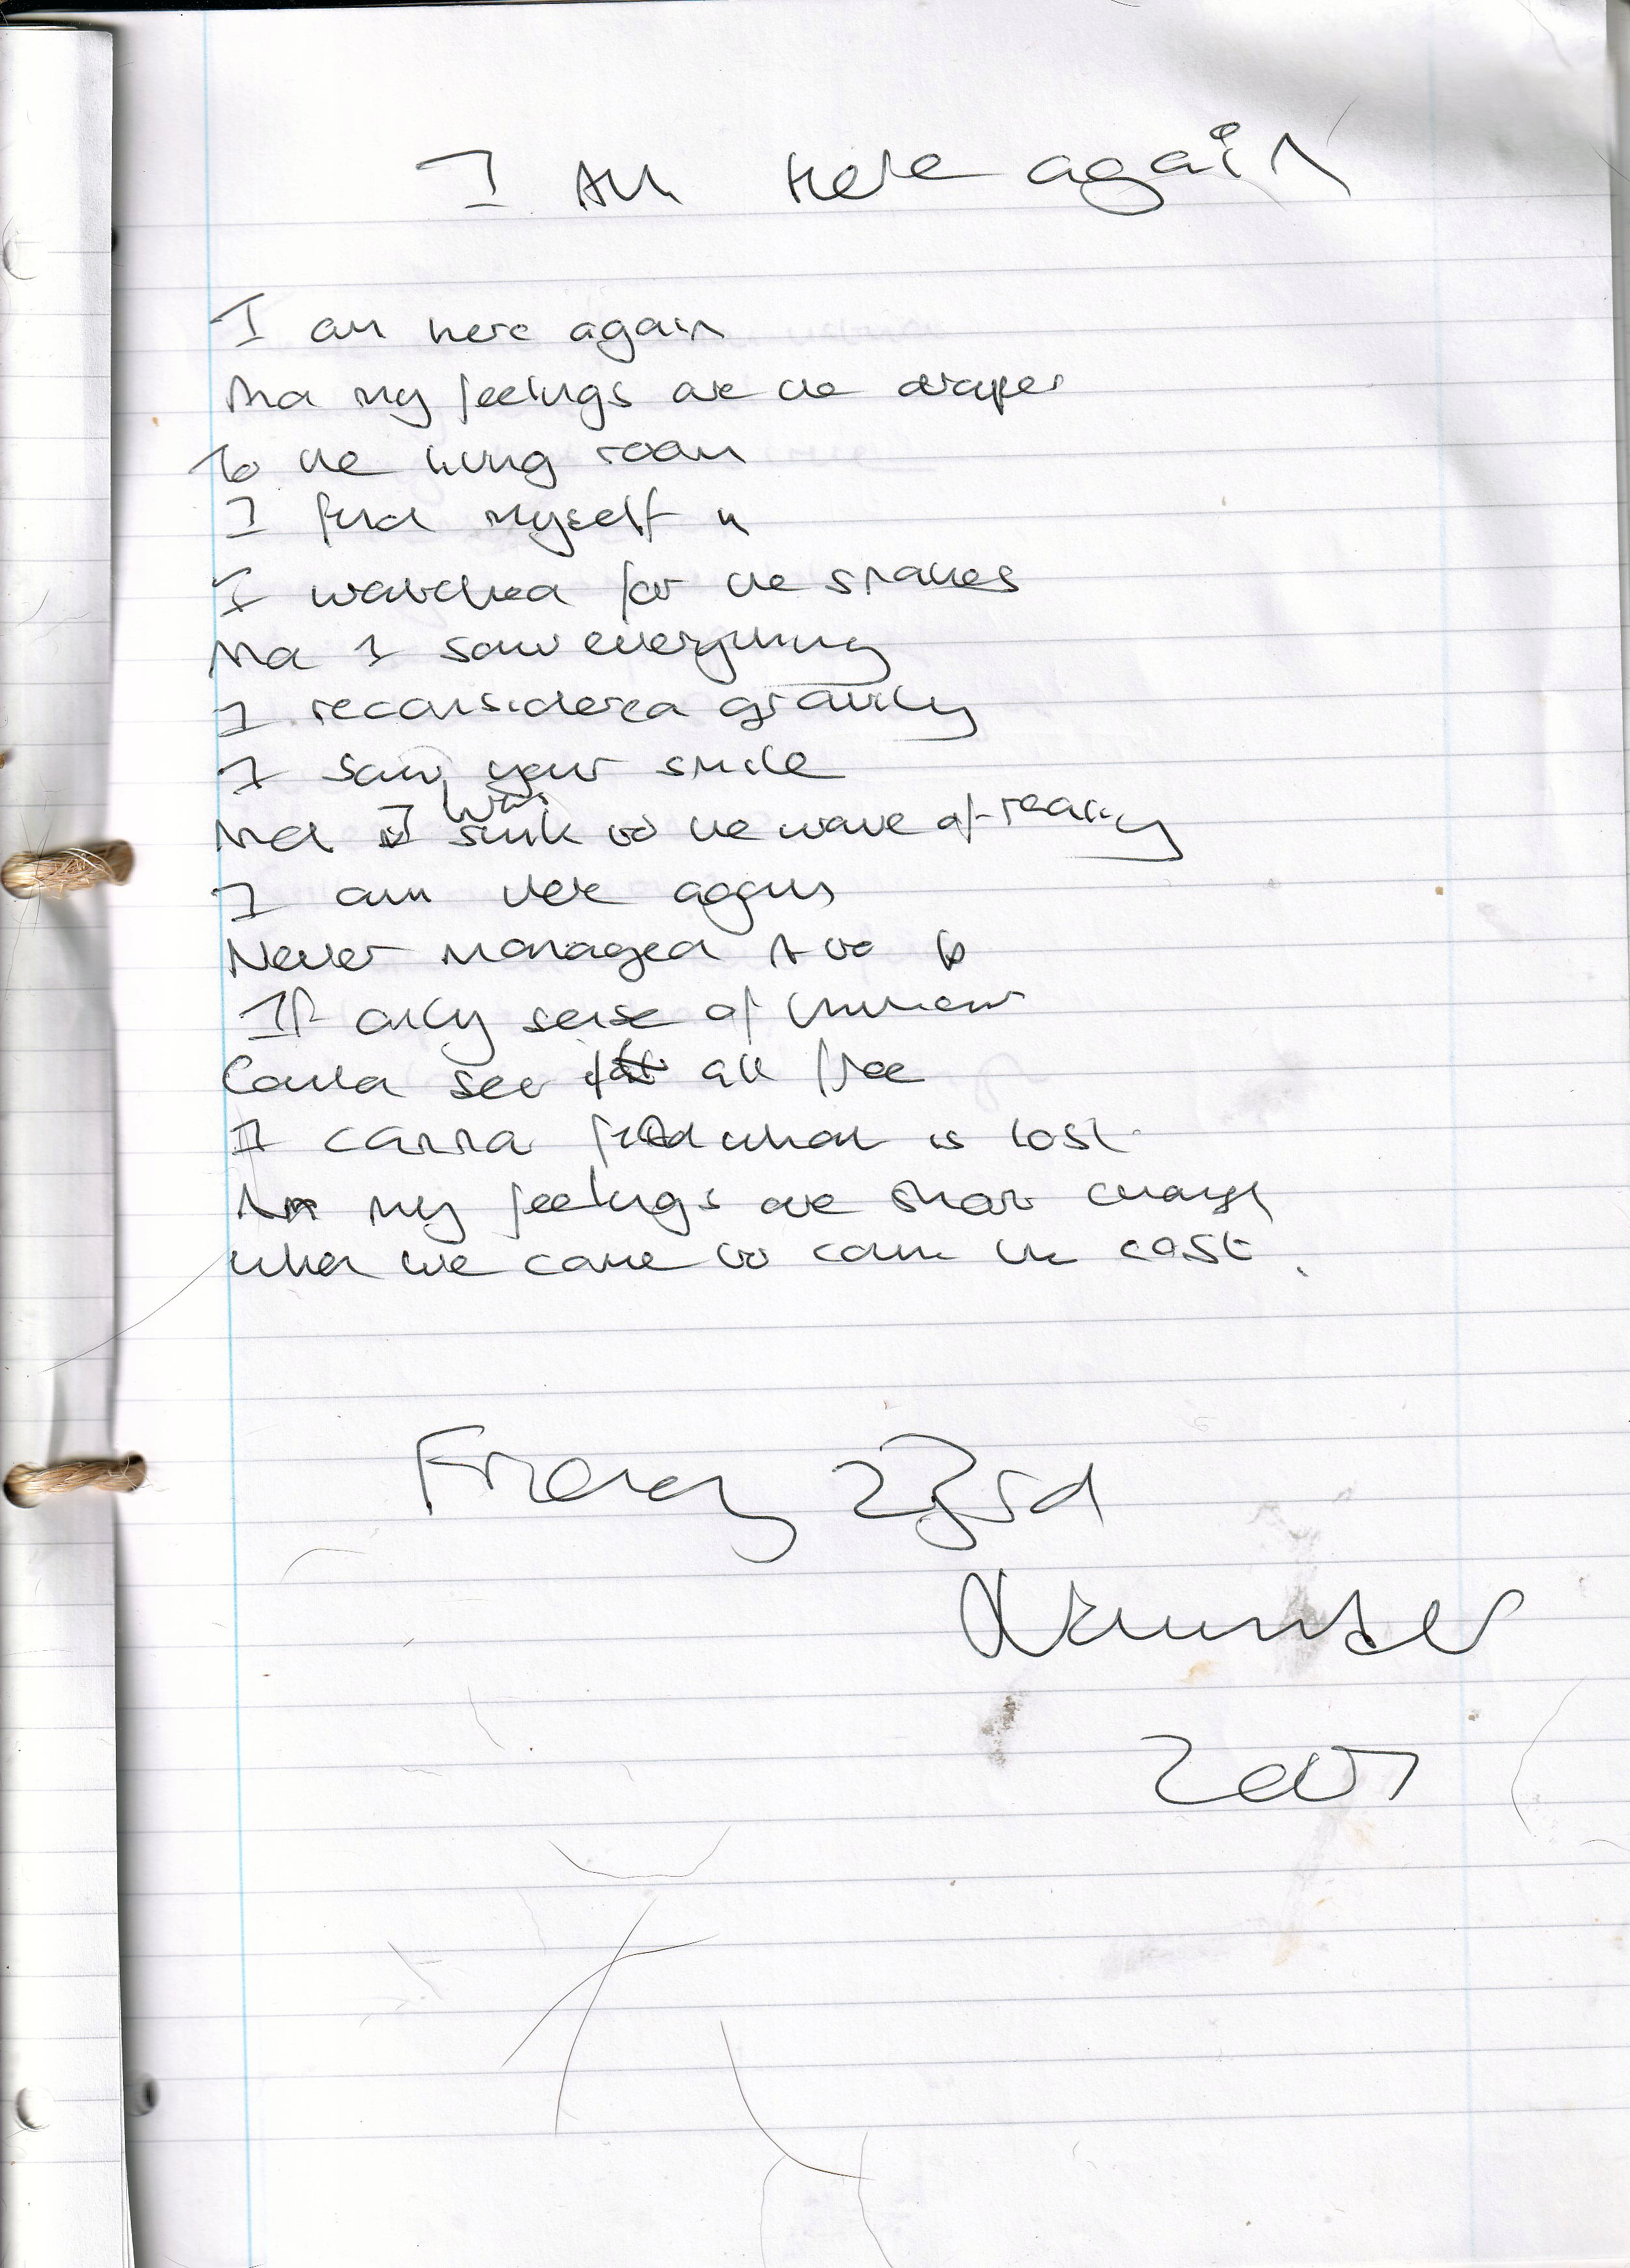 I Am Here again
I am here again
And my feelings are the draper
To the living room
I find myself in
I watched for the snakes
And I saw everything
I reconsidered gravity
I saw your smile
And I was sunk to the wave of reality
I am here again
Never managed to
If only sense of
Could see all free
I cannot find what is lost
And my feelings are short change
When we come to count the cost.
Friday 23rd
November
2007